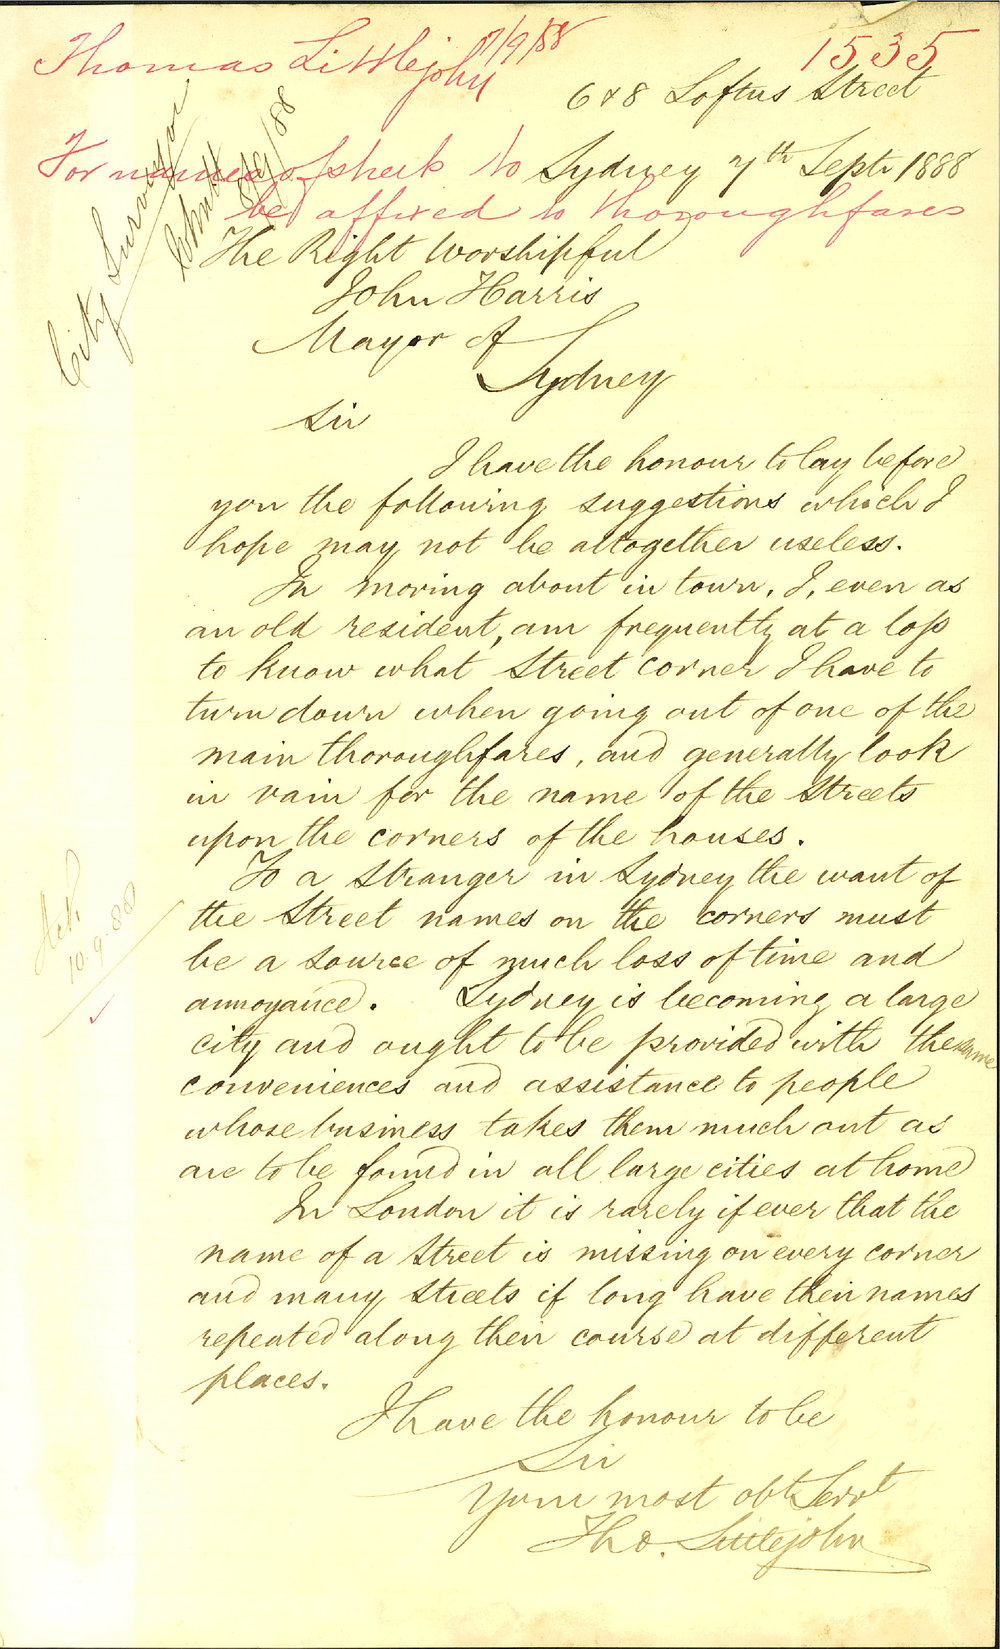 Thomas Littlejohn 7/9/88
1535
6 & 8 Loftus Street
For names of streets to
Sydney 7th Sept 1888
be affixed to thoroughfares
City Surveyor
/88
The Right Worshipful
John Harris
Mayor of
Sydney
Sir
I have the honour to lay before
you the following suggestions which I
hope may not be altogether useless.
In moving about in town, I, even as
an old resident, am frequently at a loss
to know what Street corner I have to
turn down when going out of one of the
main thoroughfares, and generally look
in vain for the name of the Streets
upon the corners of the houses.
To a stranger in Sydney the want of
the Street names on the corners must
be a source of much loss of time and
annoyance. Sydney is becoming a large
city and ought to be provided with the same
conveniences and assistance to people
whose business takes them much out as
are to be found in all large cities at home
In London it is rarely if ever that the
name of a Street is missing on every corner
and many Streets if long have their names
repeated along their course at different
places.
Ack.
10.9.88
I have the honour to be
Sir
Your most obt Servt
Tho. Littlejohn